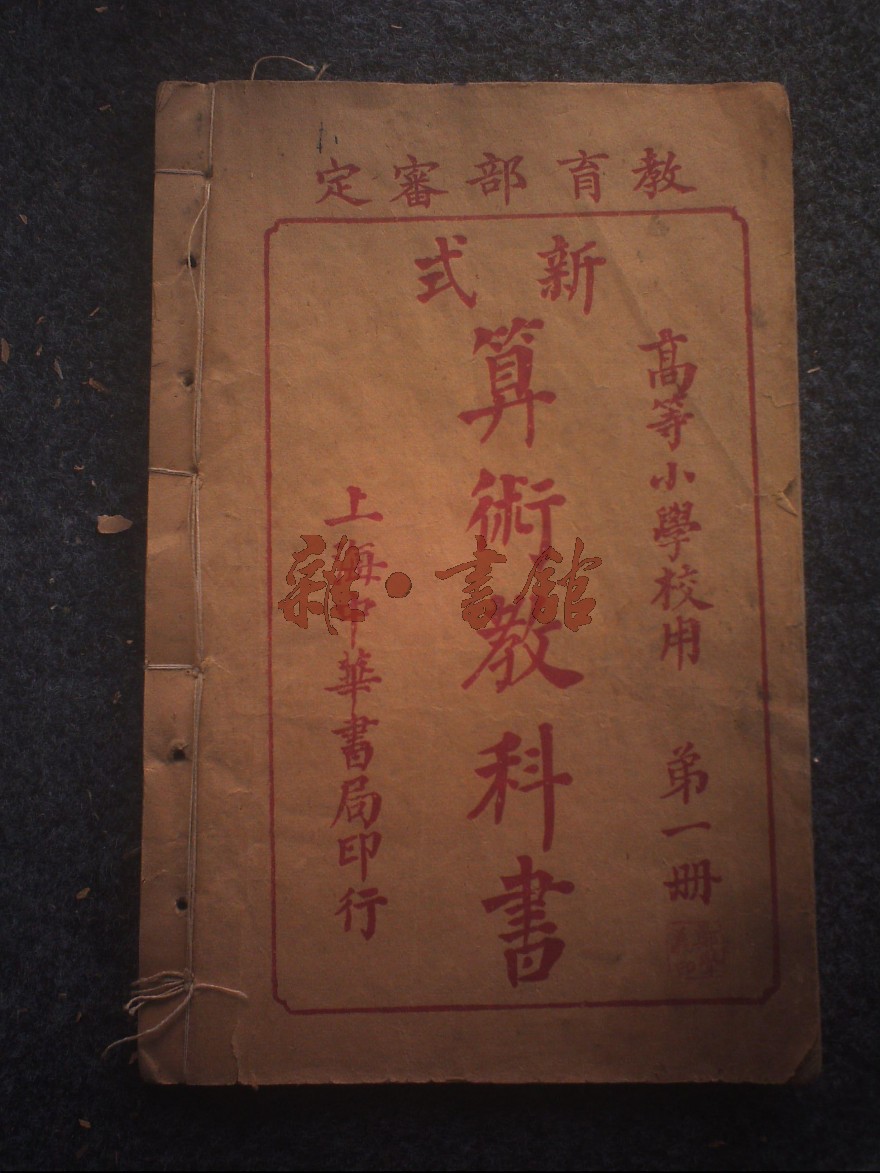 教育部審定
新式
高等小學校用 第一册
算術教科書
上海中華書局印行
雜·書館